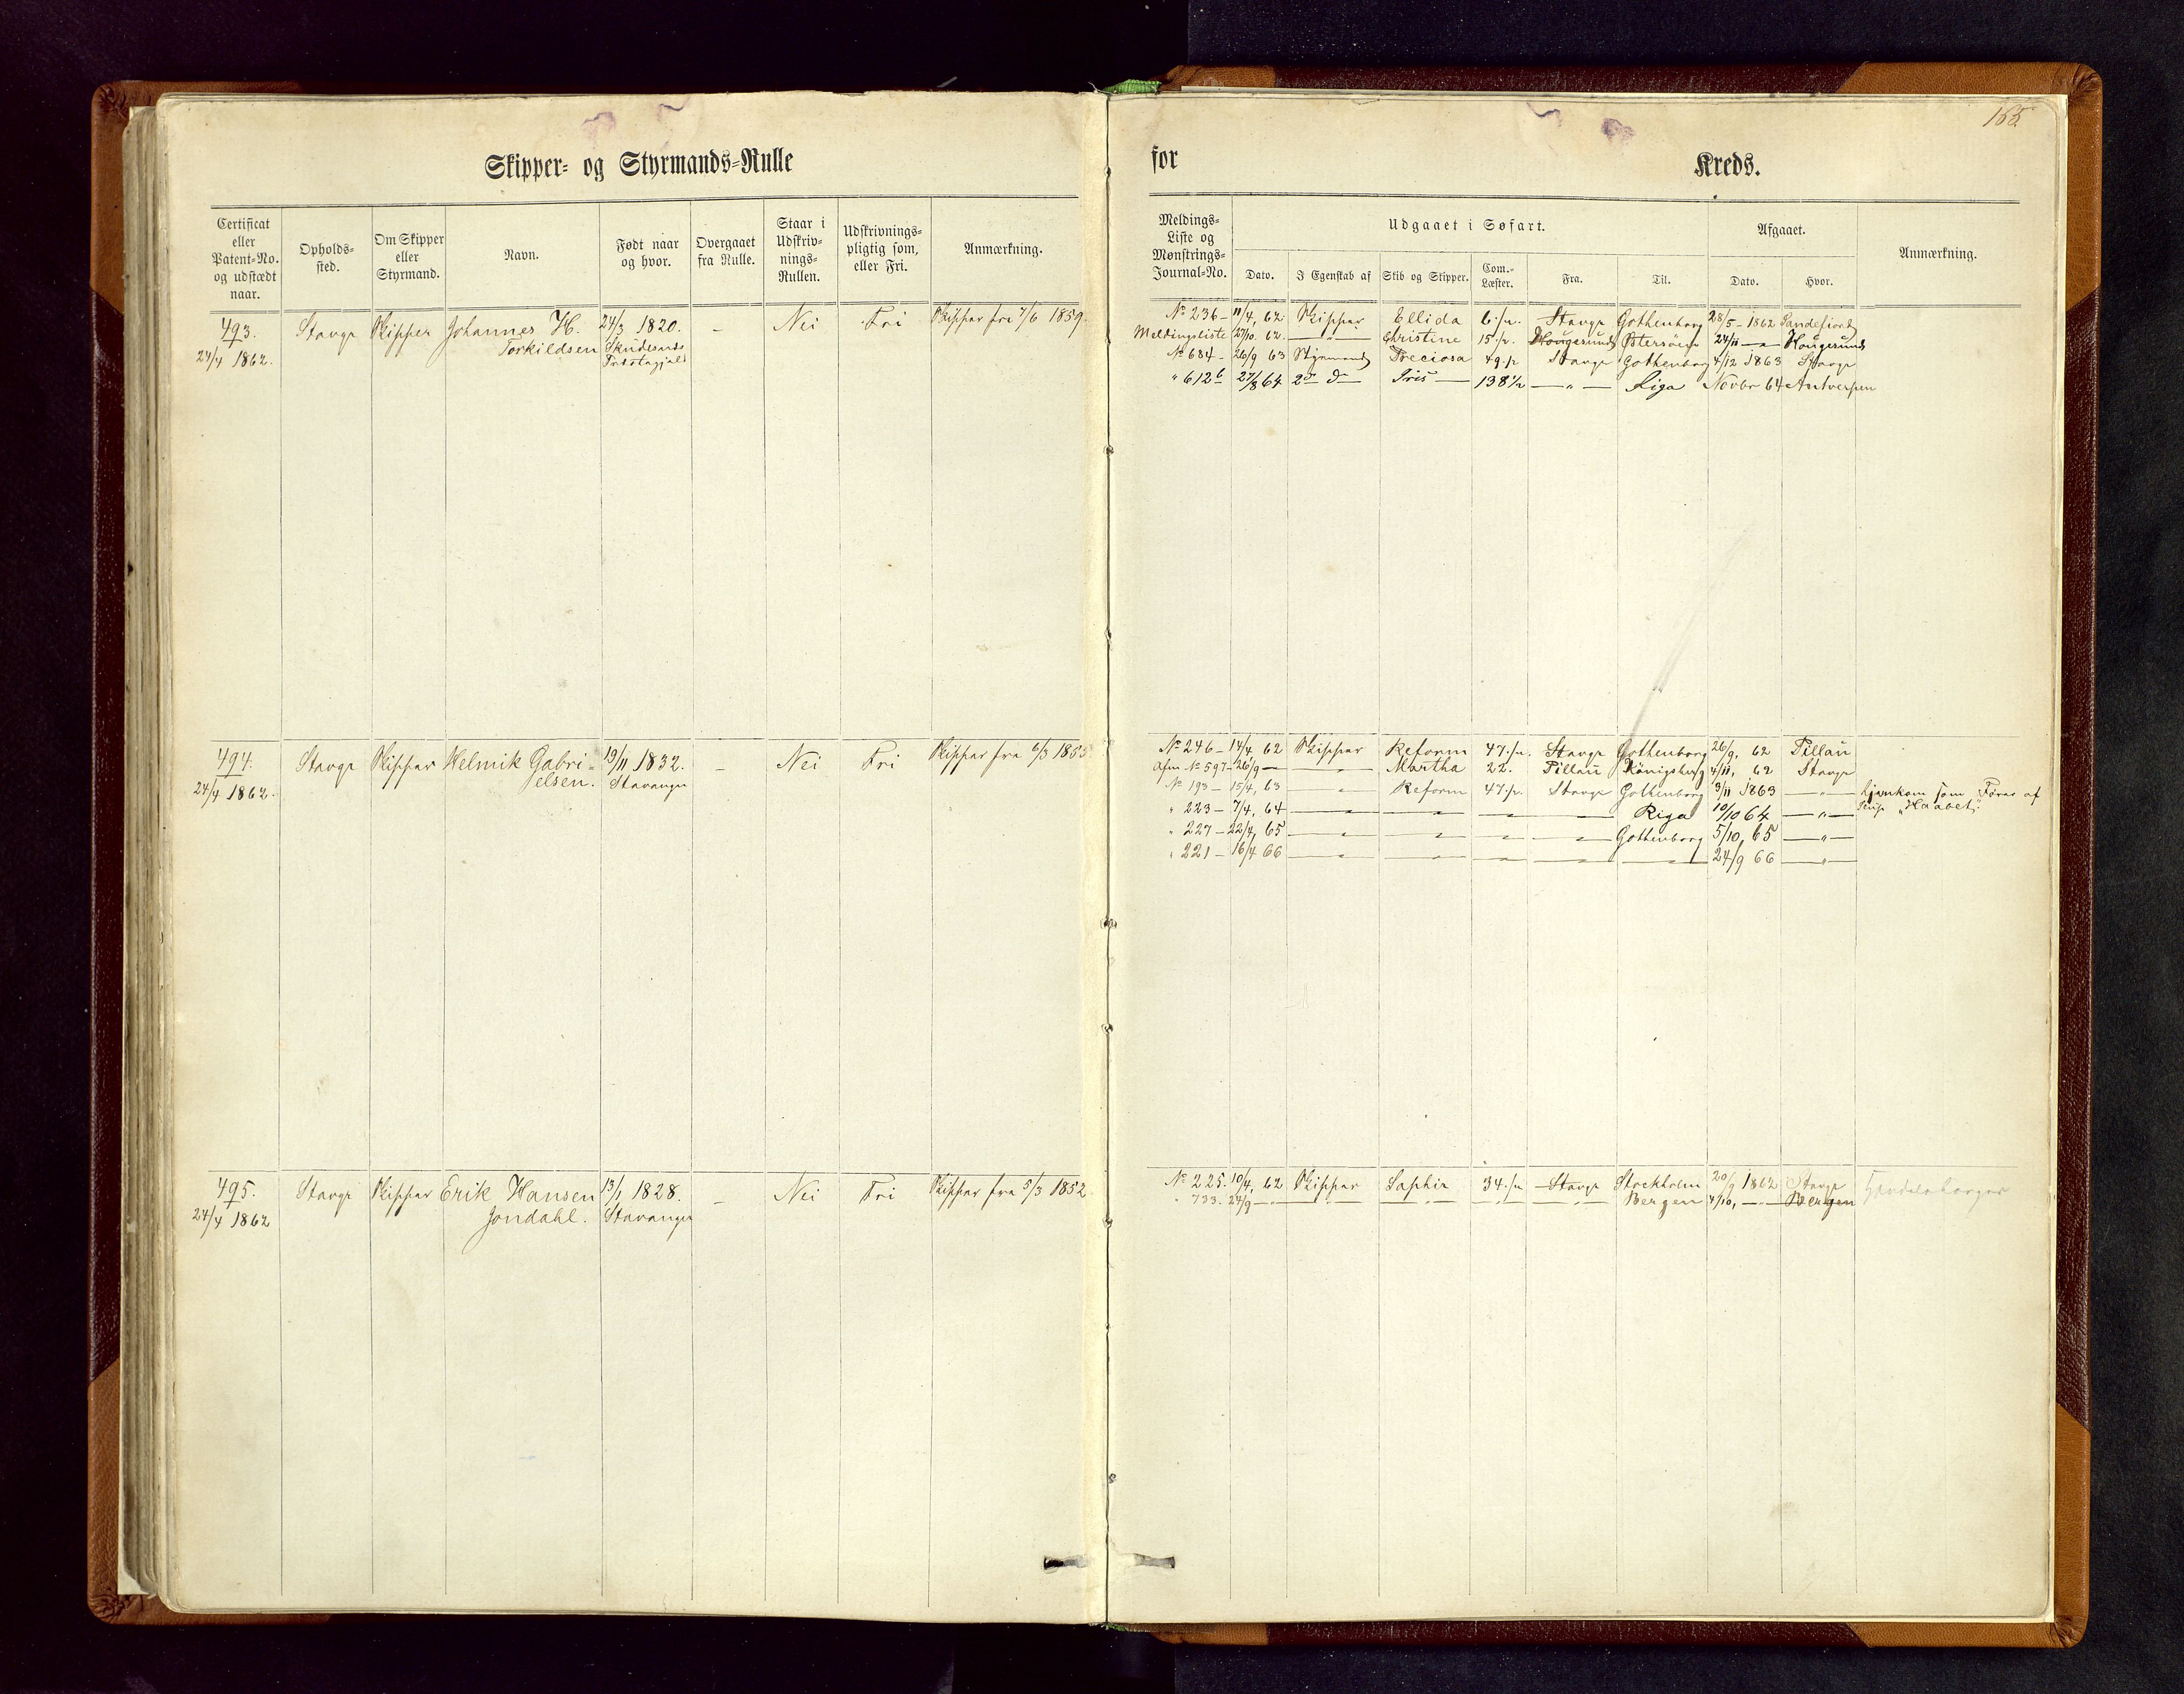 165
Skipper- og Styrmands-Rulle
for
Kreds.
Certificat eller Patent-No. og udstædt naar.
Opholds-sted.
Om Skipper eller Styrmand.
Navn.
Født naar og hvor.
Overgaaet fra Rulle.
Staar i Udskriv-nings-Rullen.
Udskrivnings-pligtig som, eller Fri.
Anmærkning.
Meldings-Liste og Mønstrings-Journal-No.
Udgaaet i Søfart.
Dato.
I Egenskab af
Skib og Skipper.
Com.-Læster.
Fra.
Til.
Afgaaet.
Dato.
Hvor.
Anmærkning.
493. Stavgr Skipper Johannes H. 24/3 1820. – Nei Fri Skipper fra 7/6 1859.
24/4 1862. Torkildsen Skudesnds
Præstegjeld
No 236 – 11/4, 62 Skipper Ellida Stavgr Gothenborg 28/5 – 1862 Sandefiord
Meldingsliste 27/10. 62. — " — Christine Hougesund 24/11 — " Hougesund
No 684 – 26/9 63 Styrmand Preciosa Stavgr Gothenborg 4/12 1863 Stavgr
" 612 b 27/8 64 2n do Iris — 138 1/2 — " — Riga Novbr 64 Antwerpen
494. Stavgr Skipper Helmik Gabri- 19/11 1832. – Nei Fri Skipper fra 6/3 1855
24/4 1862. elsen. Stavanger
No 246 – 14/4, 62 Skipper Reform Stavgr Gothenborg 26/9, 62 Pillau
No 597 – 26/9 — — " — Martha 22. Pillau Königsberg 4/11, 62 Stavgr
No 193 – 15/4, 63 — " — Reform Stavgr Gothenborg 3/11 1863 — " — hjemkom som Fører af
" 223 – 7/4, 64 — " — — " — — " — — " — Riga 10/10 64 — " — "Haabet".
" 227 – 22/4, 65 — " — — " — — " — — " — Gothenborg 5/10, 65 — " —
" 221 – 16/4 66 — " — — " — — " — — " — — " — 24/9 66 — " —
495. Stavgr Skipper Erik Hansen 13/1 1828. – Nei Fri Skipper fra 5/3 1852
24/4 1862 Jondahl. Stavanger
No 225. 10/4, 62 Skipper Sophie Stavgr Stockholm 20/9 1862 Stavgr
" 733. 24/9 — — " — — " — — " — — " — Bergen 4/10, — " — Bergen